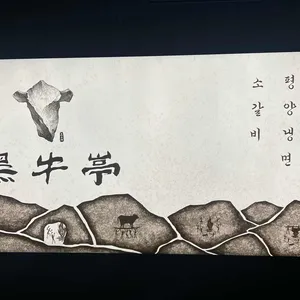 黑牛亭
평양냉면
소갈비